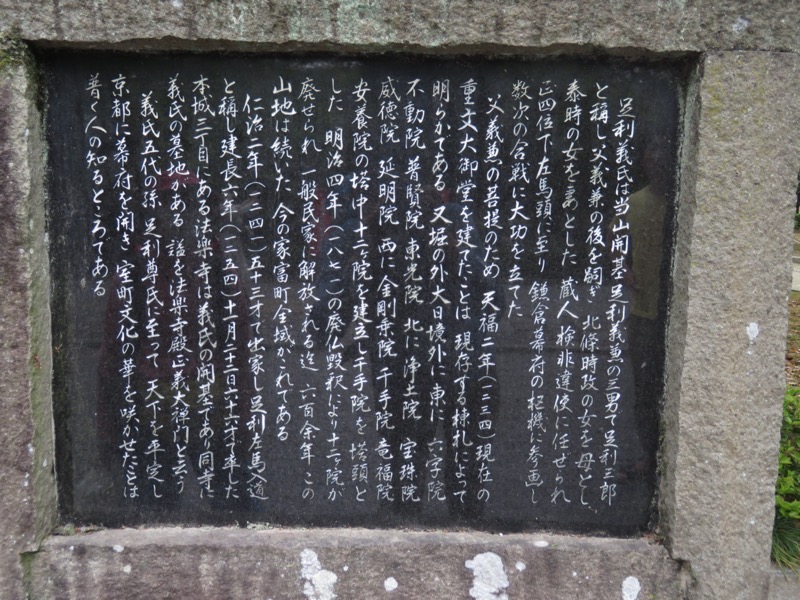 足利義氏は当山開基足利義兼の三男で足利三郎
と称し父義兼の後を嗣ぎ 北條時政の女を母とし
泰時の女を妻とした 蔵人検非違使に任ぜられ
正四位下左馬頭に至り 鎌倉幕府の枢機に参画し
数次の合戦に大功を立てた
父義兼の菩提のため 天福二年(一二三四)現在の
重文大御堂を建てたことは 現存する棟札によって
明らかである 又堀の外大日境外に東に 六字院
不動院 普賢院 東光院 北に浄土院 宝珠院
威徳院 延明院 西に金剛乗院 千手院 竜福院
安養院の塔中十二ヶ院を建立し千手院を塔頭と
した 明治四年(一八七一)の廃仏毀釈により十二院が
廃せられ 一般民家に解放される迄 六百余年この
山地は続いた 今の家富町全域がこれである
仁治二年(一二四一)五十三才で出家し足利左馬入道
と称し建長六年(一二五四)十一月二十二日六十六才で卒した
本城三丁目にある法楽寺は義氏の開基であり同寺に
義氏の墓地がある 諡を法楽寺殿正義大禅門と云う
義氏五代の孫 足利尊氏に至って 天下を平定し
京都に幕府を開き 室町文化の華を咲かせたことは
普く人の知るところである